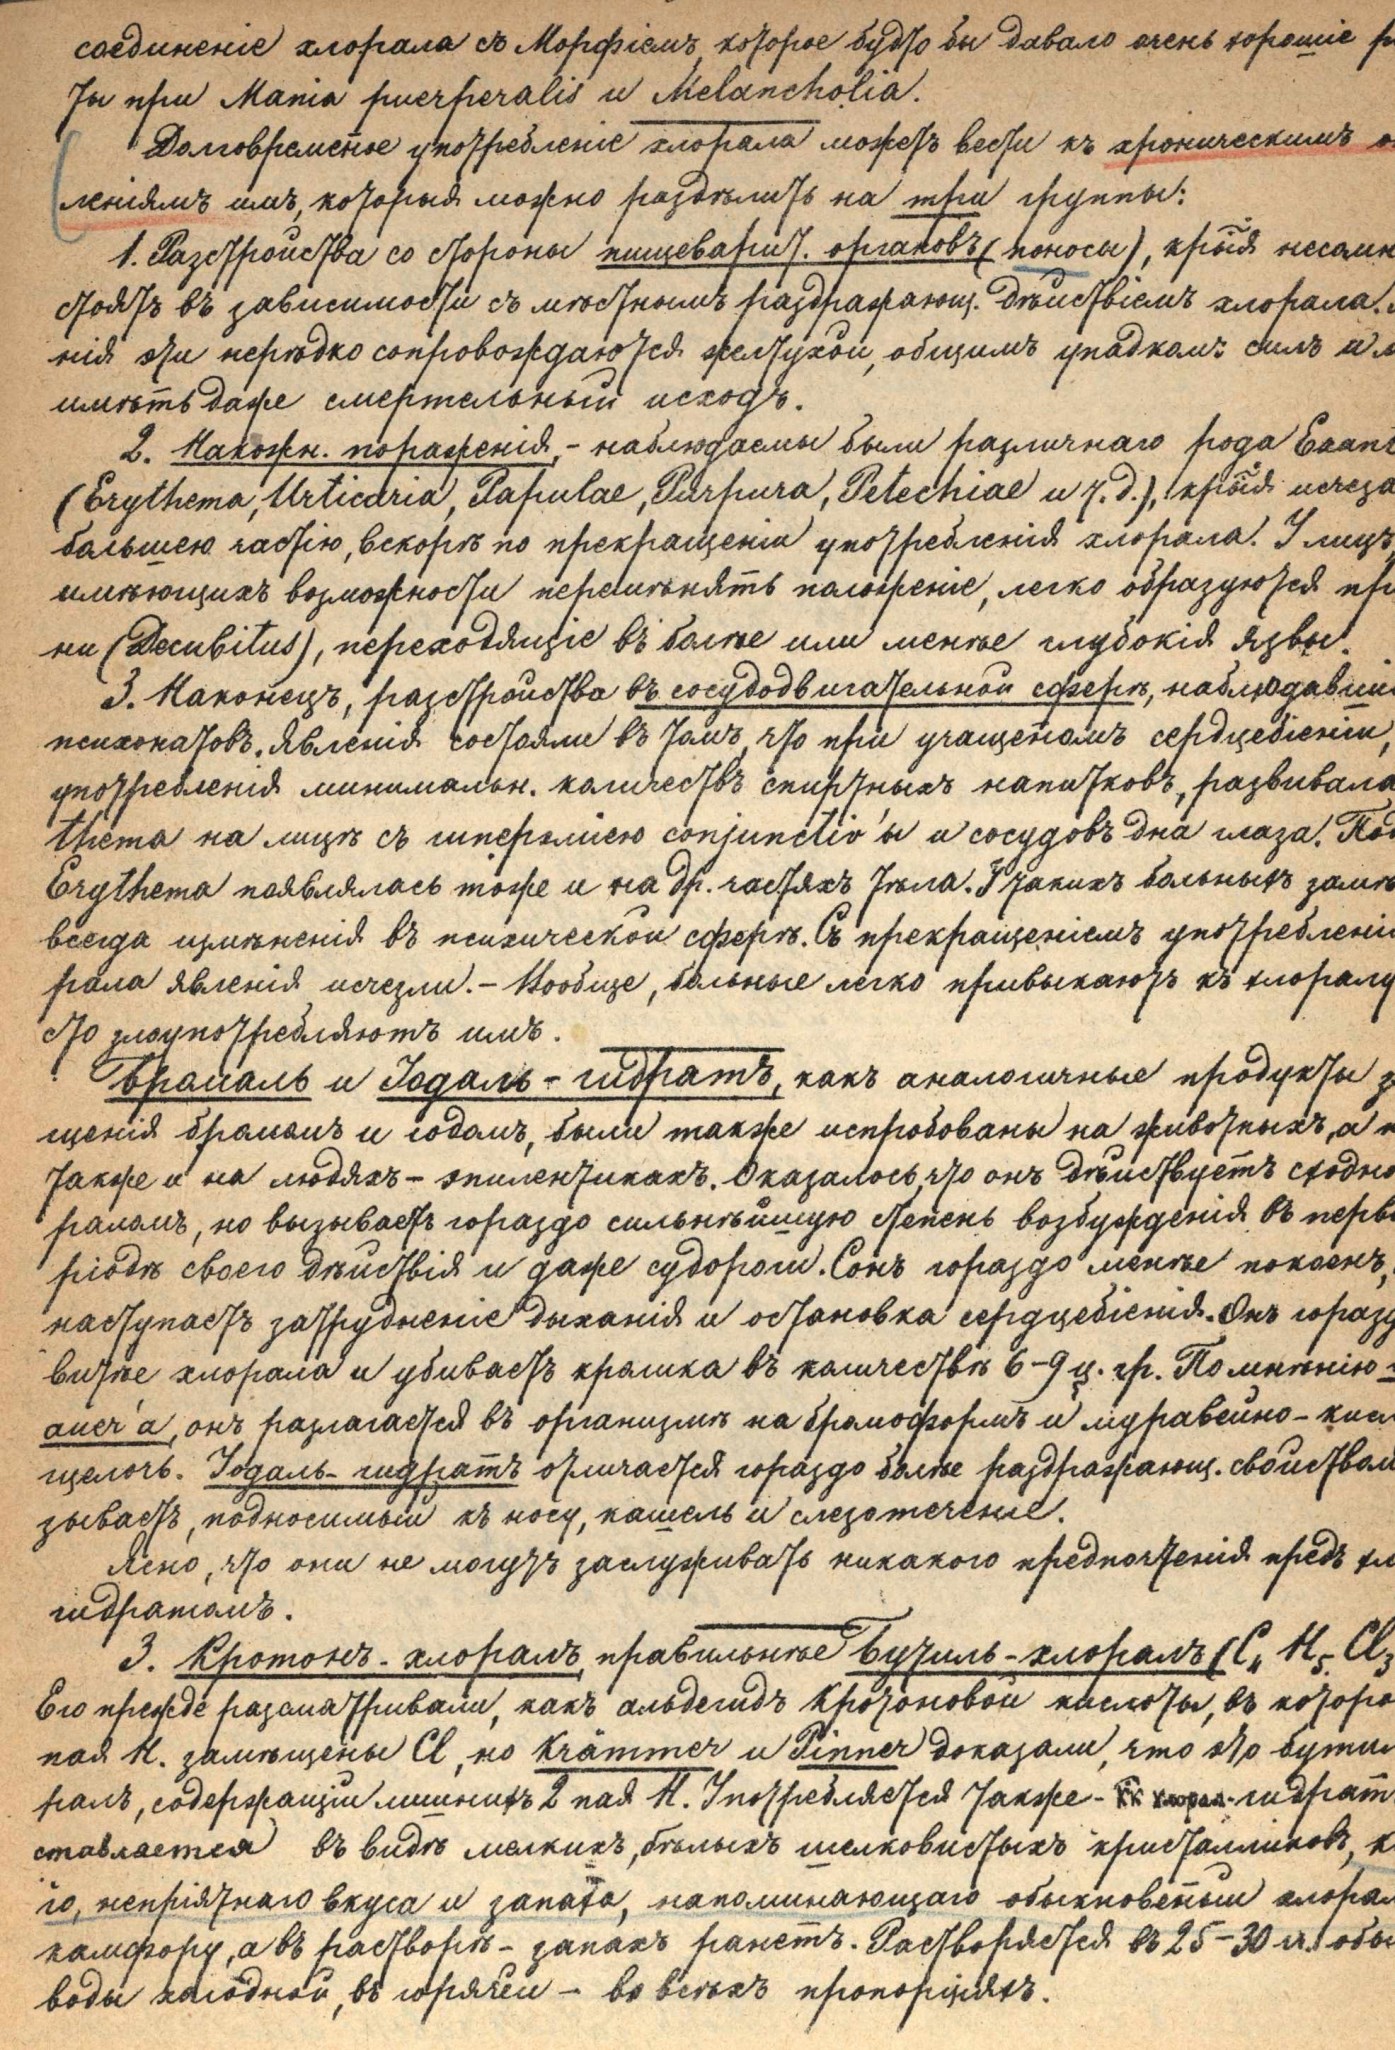 соединеніе хлорала съ Морфіемъ, которое будто бы давало очень хорошіе р
ты при Mania puerperalis и Melancholia.
Долговремен̄ое употребленіе хлорала можетъ вести къ хроническимъ о
леніямъ имъ, которыя можно раздѣлить на три группы:
1. Разстройства со стороны пищеварит. органовъ (поносы), кр̃ыя несомн
стоятъ въ зависимости съ мѣстнымъ раздражающ. дѣйствіемъ хлорала.
нія эти нерѣдко сопровождаются желтухой, общимъ упадкомъ силъ и м
имѣть даже смертельный исходъ.
2. Накожн. пораженія, – наблюдаемы были различнаго рода Exant
(Erythema, Urticaria, Papulae, Purpura, Petechiae и т.д.), кр̃ыя исчеза
большею частію, вскорѣ по прекращеніи употребленія хлорала. У лицъ,
имѣющихъ возможности перемѣнять положеніе, легко образуются пр
ни (Decubitus), переходящіе въ болѣе или менѣе глубокія язвы.
3. Наконецъ, разстройства въ сосудодвигательной сферѣ, наблюдавші
психопатовъ. Явленія состояли въ томъ, что при учащен̄омъ сердцебіеніи,
употребленія минимальн. количествъ спиртныхъ напитковъ, развивала
thema на лицѣ съ гипереміею conjunctiv'ы и сосудовъ дна глаза. Под
Erythema появлялась тоже и на др. частяхъ тѣла. У такихъ больныхъ замѣ
всегда измѣненія въ психической сферѣ. Съ прекращеніемъ употребленi
рала явленія исчезли. – Вообще, больные легко привыкаютъ къ хлоралу
сто злоупотребляютъ имъ.
Бромаль и Іодаль-гидратъ, какъ аналогичные продукты з
щенія бромомъ и іодомъ, были также испробованы на животныхъ, а п
также и на людяхъ – эпилептикахъ. Оказалось, что онъ дѣйствуетъ сходно
раломъ, но вызываетъ гораздо сильнѣйшую степень возбужденія въ перв
ріодѣ своего дѣйствія и даже судороги. Сонъ гораздо менѣе покоенъ,
наступаетъ затрудненіе дыханія и остановка сердцебіенія. Онъ горазд
витѣе хлорала и убиваетъ кролика въ количествѣ 6–9 ц. гр. По мнѣнію
auer'а, онъ разлагается въ организмѣ на бромоформъ и муравейно-кисл
щелочь. Іодаль-гидратъ отличается гораздо болѣе раздражающ. свойствам
зываетъ, подносимый къ носу, кашель и слезотеченіе.
Ясно, что они не могутъ заслуживать никакого предпочтенія предъ хл
гидратомъ.
3. Кротонъ-хлоралъ, правильнѣе Бутилъ-хлоралъ (C₄ H₅ Cl₃
Его прежде разсматривали, какъ альдегидъ Кротоновой кислоты, въ которо
пая H. замѣщены Cl, но Krämmer и Pinner доказали, что это бутил
ралъ, содержащій лишнихъ 2 пая H. Употребляется также - гидрат
ставляется въ видѣ мелкихъ, бѣлыхъ шелковистыхъ кристалликовъ, к
го, непріятнаго вкуса и запаха, напоминающаго обыкновен̄ый хлорал
камфору, а въ растворѣ – запахъ ранетъ. Растворяется въ 25–30 ч. обы
воды холодной, въ горячей – во всѣхъ пропорціяхъ.